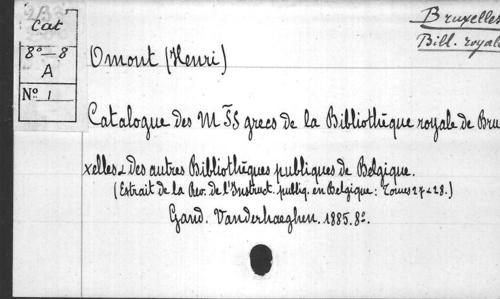 Cat
8º — 8
A
Nº 1
Bruxelles
Bill. royale
Omont (Henri)
Catalogue des MSS grecs de la Bibliothèque royale de Bru
xelles & des autres Bibliothèques publiques de Belgique.
(Extrait de la Rev. de l'Instruct. publiq. en Belgique: Tomes 27 & 28.)
Gand. Vanderhaeghen. 1885. 8º.